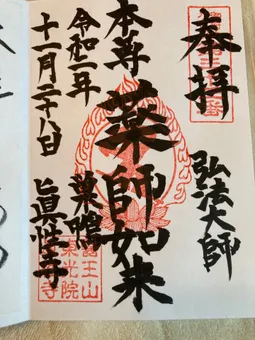 奉拝
弘法大師
本尊
薬師如来
令和二年
十一月二十八日
巣鴨
眞性寺
醫王山
東光院